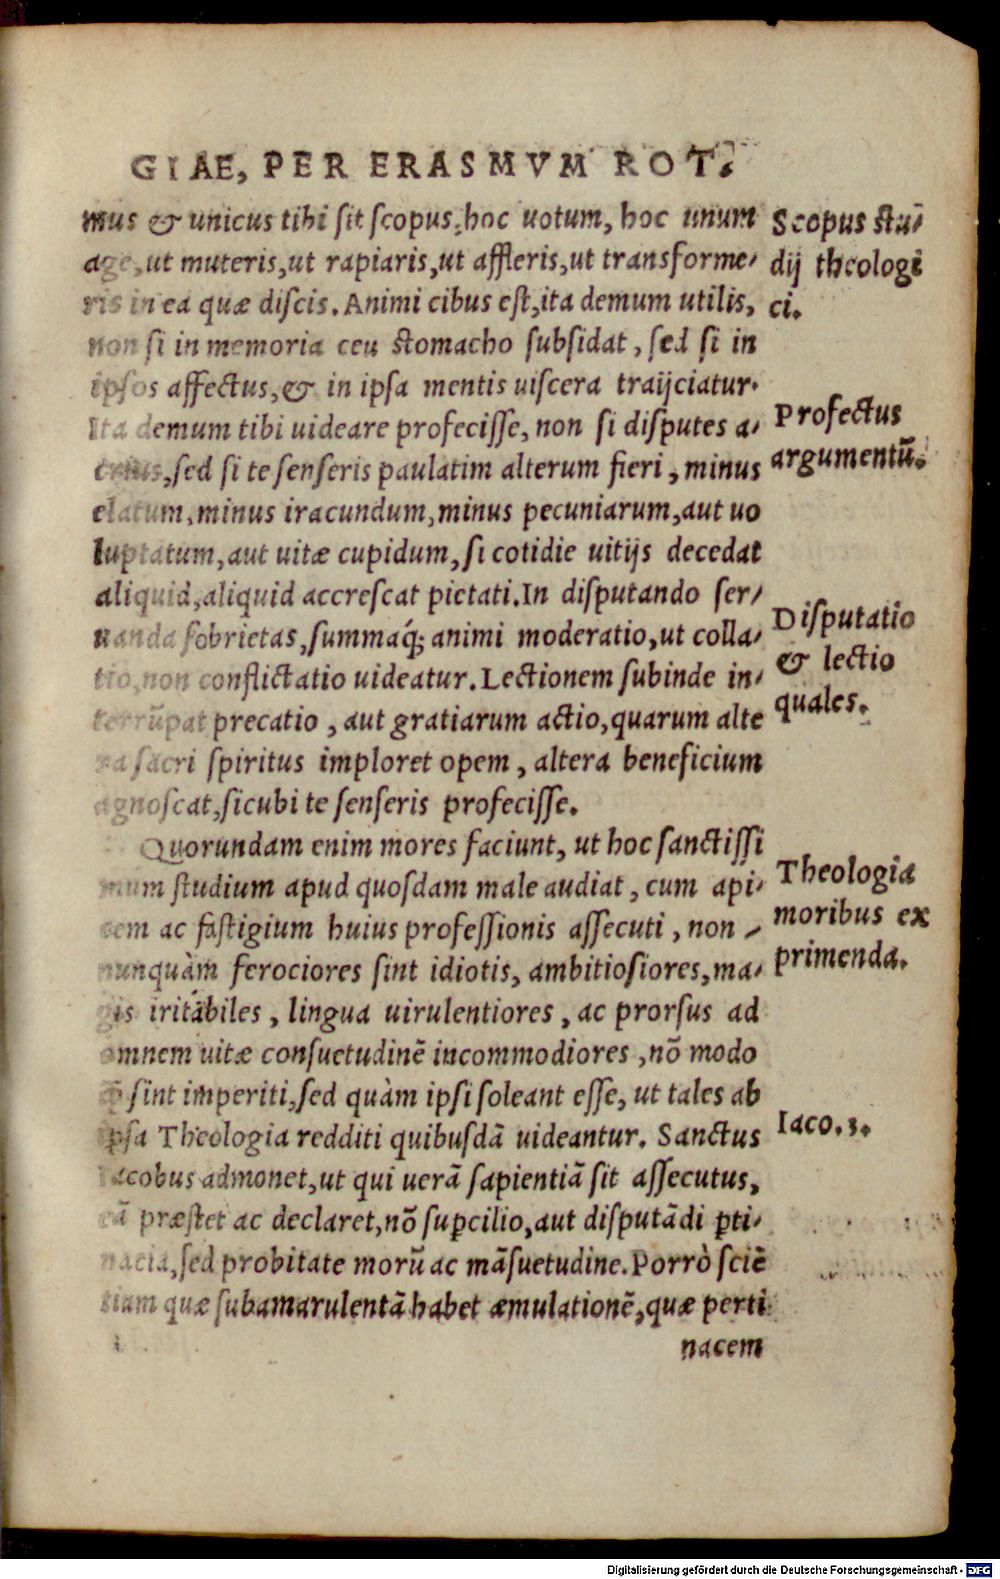 GIAE, PER ERASMVM ROT.
mus & unicus tibi sit scopus, hoc uotum, hoc unum
age, ut muteris, ut rapiaris, ut affleris, ut transforme-
ris in ea quæ discis. Animi cibus est, ita demum utilis,
non si in memoria ceu stomacho subsidat, sed si in
ipsos affectus, & in ipsa mentis uiscera traijciatur.
Ita demum tibi uideare profecisse, non si disputes a-
crius, sed si te senseris paulatim alterum fieri, minus
elatum, minus iracundum, minus pecuniarum, aut uo
luptatum, aut uitæ cupidum, si cotidie uitijs decedat
aliquid, aliquid accrescat pietati. In disputando ser-
uanda sobrietas, summaq́; animi moderatio, ut colla-
tio, non conflictatio uideatur. Lectionem subinde in-
terrũpat precatio, aut gratiarum actio, quarum alte
ra sacri spiritus imploret opem, altera beneficium
agnoscat, sicubi te senseris profecisse.
Quorundam enim mores faciunt, ut hoc sanctissi
mum studium apud quosdam male audiat, cum api-
cem ac fastigium huius professionis assecuti, non -
nunquàm ferociores sint idiotis, ambitiosiores, ma-
gis iritábiles, lingua uirulentiores, ac prorsus ad
omnem uitæ consuetudinẽ incommodiores, nõ modo
q̃ sint imperiti, sed quàm ipsi soleant esse, ut tales ab
ipsa Theologia redditi quibusdã uideantur. Sanctus
Iacobus admonet, ut qui uerã sapientiã sit assecutus,
eã præstet ac declaret, nõ suꝑcilio, aut disputãdi ꝑti-
nacia, sed probitate morũ ac mãsuetudine. Porrò sciẽ
tiam quæ subamarulentã habet æmulationẽ, quæ perti
nacem
Scopus stu-
dij theologi
ci.
Profectus
argumentũ.
Disputatio
& lectio
quales.
Theologia
moribus ex
primenda.
Iaco. 3.
Digitalisierung gefördert durch die Deutsche Forschungsgemeinschaft - DFG